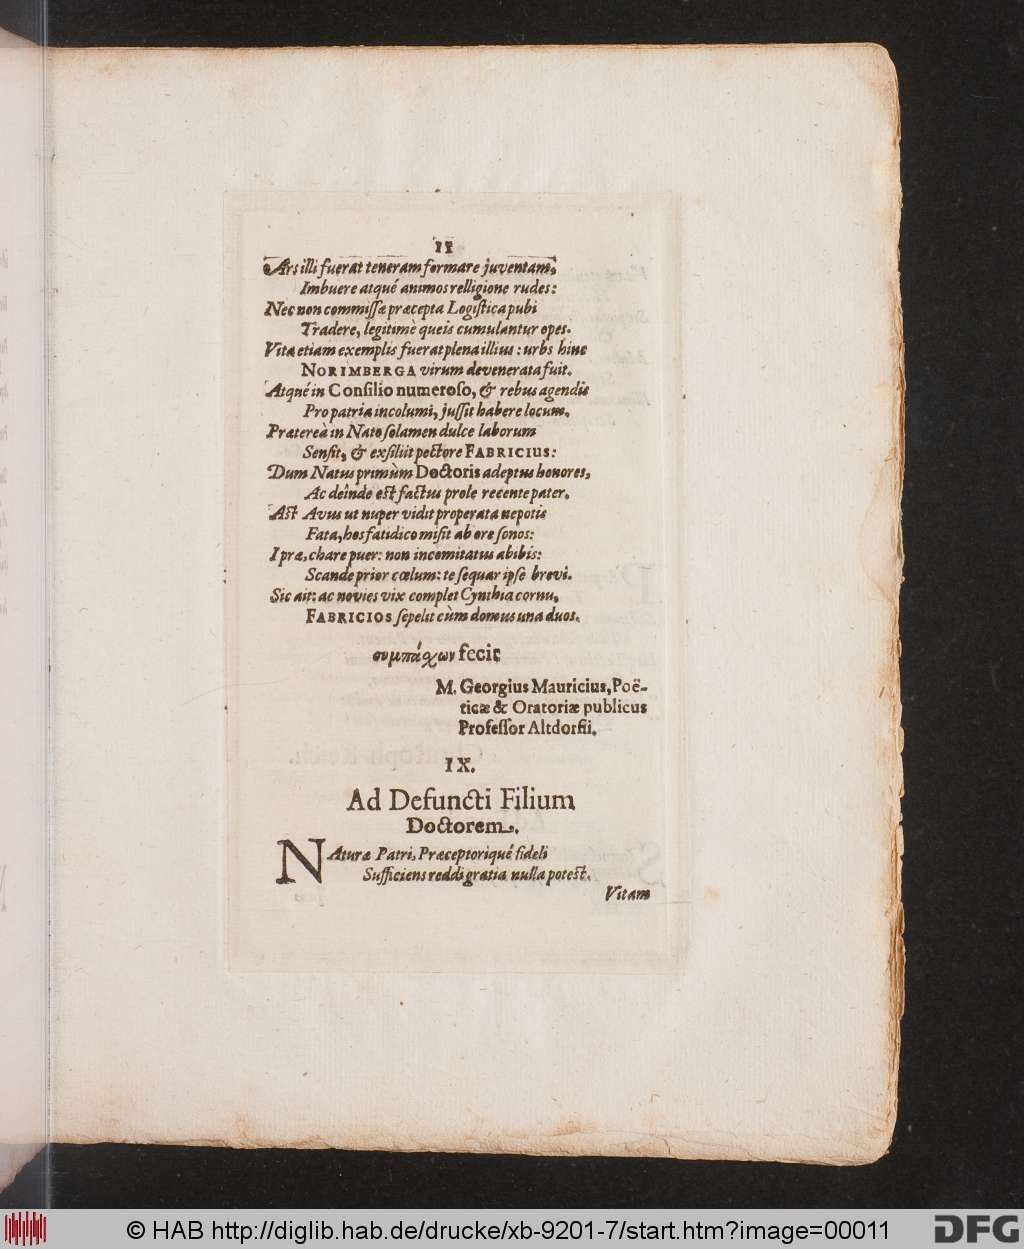 11
Ars illi fuerat teneram formare juventam,
Imbuere atqué animos relligione rudes:
Nec non commiſſæ præcepta Logiſtica pubi
Tradere, legitimè queis cumulantur opes.
Vita etiam exemplis fuerat plena illius: urbs hinc
NORIMBERGA virum devenerata fuit.
Atqué in Conſilio numeroſo, & rebus agendis
Pro patria incolumi, juſſit habere locum.
Prætereà in Nato ſolamen dulce laborum
Senſit, & exſiliit pectore FABRICIUS:
Dum Natus primùm Doctoris adeptus honores,
Ac deînde est factus prole recente pater.
Ast Avus ut nuper vidit properata nepotis
Fata, hos fatidico miſit ab ore ſonos:
I præ, chare puer: non incomitatus abibis:
Scande prior cœlum: te ſequar ipſe brevi.
Sic ait: ac novies vix complet Cynthia cornu,
FABRICIOS ſepelit cùm domus una duos.
συμπάχων fecit
M. Georgius Mauricius, Poë-
ticæ & Oratoriæ publicus
Profeſſor Altdorfii.
IX.
Ad Defuncti Filium
Doctorem.
NAturæ Patri, Præceptoriqué fideli
Sufficiens reddi gratia nulla potest.
Vitam
© HAB http://diglib.hab.de/drucke/xb-9201-7/start.htm?image=00011
DFG